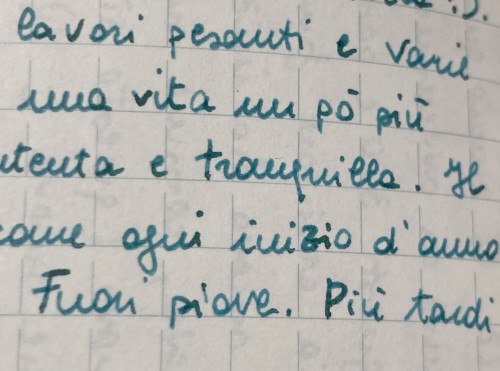 lavori pesanti e varie
una vita un pò più
tenta e tranquilla. Il
come ogni inizio d'anno
Fuori piove. Più tardi